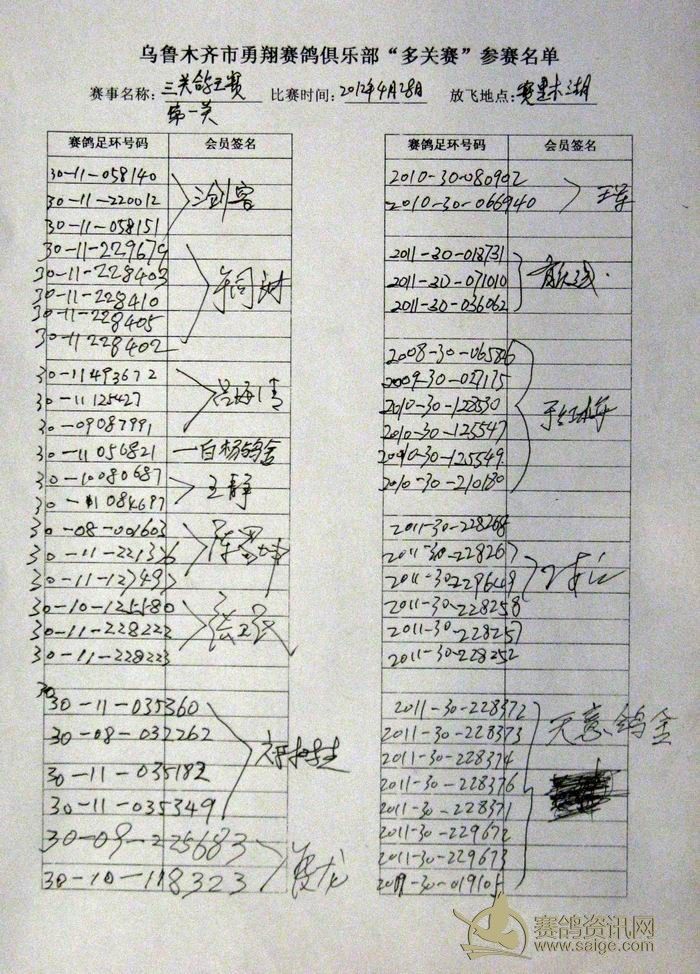 乌鲁木齐市勇翔赛鸽俱乐部“多关赛”参赛名单
赛事名称：三关鸽王赛 比赛时间：2012年4月28日 放飞地点：赛里木湖
第一关
赛鸽足环号码 会员签名
30-11-058140
30-11-220012 三剑客
30-11-058151
30-11-229679
30-11-228403
30-11-228410
30-11-228405
30-11 228402
30-11493672
30-11125427 吕海清
30-09087991
30-11 056821 一白杨鸽舍
30-10080687 王静
30-11084697
30-08-001603
30-11-221376
30-11-127497
30-10-125580
30-11-228222
30-11-228223
30
30-11-035360
30-08-032262
30-11-035182
30-11-035349
30-09-225683
30-10-118323
赛鸽足环号码 会员签名
2010-30-080902
2010-30-066940 王军
2011-30-018731
2011-30-071010
2011-30-036062
2008-30-065826
2009-30-027175
2010-30-128530
2010-30-125547
2010-30-125549
2010-30-210180
2011-30-228268
2011-30-228267
2011-30-229649
2011-30-228258
2011-30-228257
2011-30-228252
2011-30-228372 天意鸽舍
2011-30-228373
2011-30-228374
2011-30-228376
2011-30-228371
2011-30-229672
2011-30-229673
2011-30-019105
赛鸽资讯网
www.saige.com